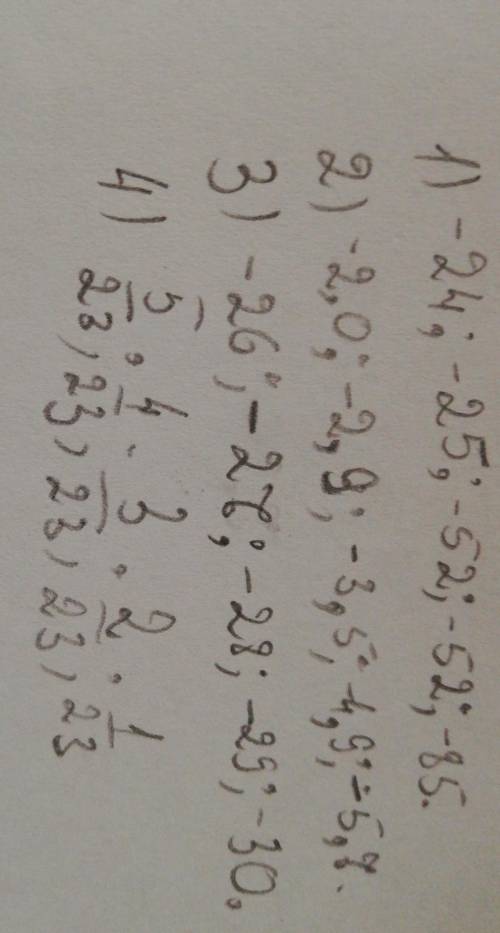 1) -24; -25; -52; -52; -85.
2) -2,0; -2,9; -3,5; -4,9; -5,8.
3) -26; -27; -28; -29; -30.
4) 5/23; 4/23; 3/23; 2/23; 1/23